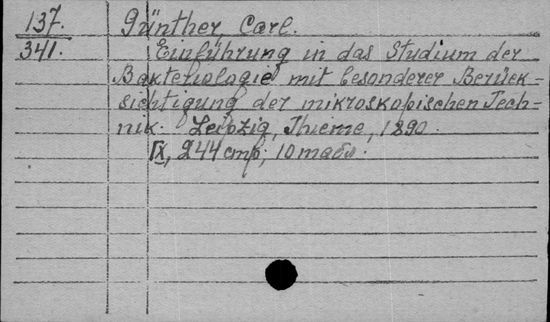 137.
341.
Günther, Carl.
Einführung in das Studium der
Bakteriologie mit besonderer Berück=
sichtigung der mikroskopischen Tech=
nik. Leipzig, Thieme, 1890.
IX, 244 стр; 10 табл.